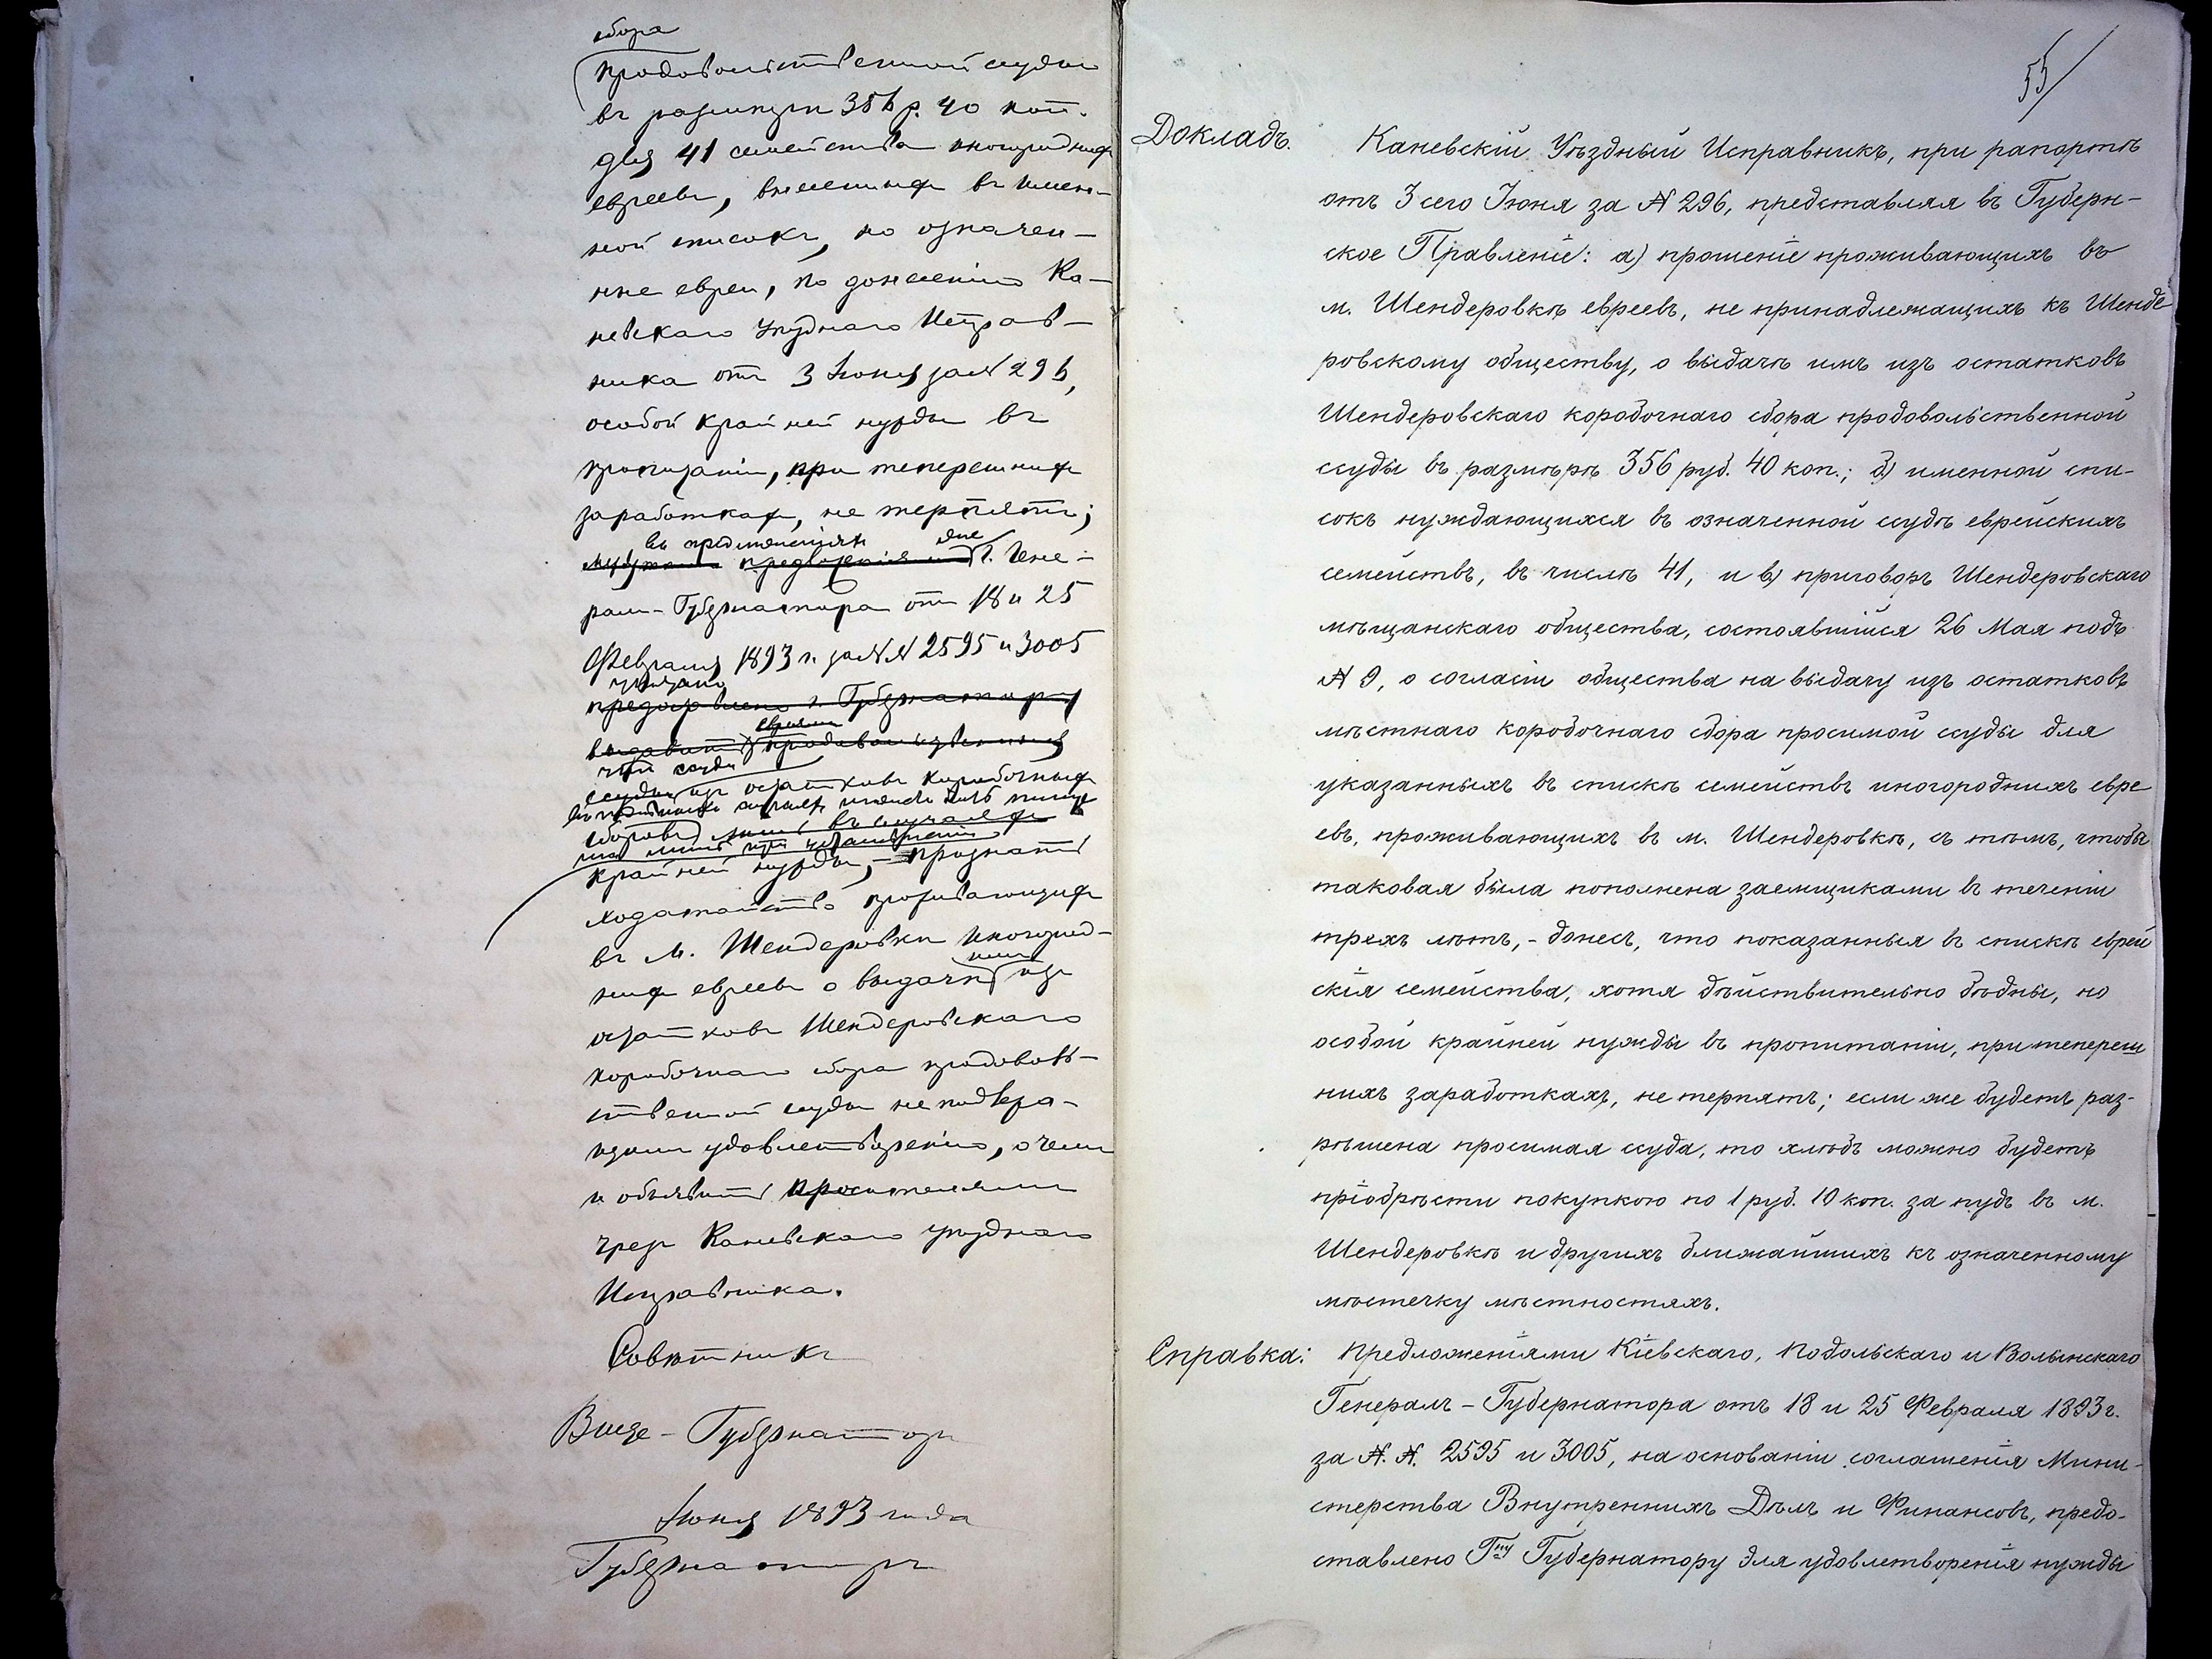 сбора
продовольственной ссуды
въ размѣрѣ 356 р. 40 коп.
для 41 семейства иногороднихъ
евреевъ, внесенныхъ въ имен-
ной списокъ, но означен-
ные евреи, по донесенію Ка-
невскаго уѣзднаго Исправ-
ника отъ 3 Іюня за № 296,
особой крайней нужды въ
пропитаніи, при теперешнихъ
заработкахъ, не терпятъ;
въ предложеніяхъ же
предложенія Г. Гене-
ралъ-Губернатора отъ 18 и 25
Февраля 1893 г. за №№ 2595 и 3005
указано
предоставлено г. Губернатору
выдавать евреямъ продовольственныя
ссуды
ссуды изъ остатковъ коробочныхъ
сборовъ лишь въ случаяхъ
крайней нужды, – признать
ходатайство проживающихъ
въ м. Шендеровкѣ иногород-
нихъ евреевъ о выдачѣ имъ изъ
остатковъ Шендеровскаго
коробочнаго сбора продоволь-
ственной ссуды не подлежа-
щимъ удовлетворенію, о чемъ
и объявить просителямъ
чрезъ Каневскаго уѣзднаго
Исправника.
Совѣтникъ
Вице-Губернаторъ
Іюня 1893 года
Губернаторъ
55
Докладъ. Каневскій Уѣздный Исправникъ, при рапортѣ
отъ 3 сего Іюня за № 296, представляя въ Губерн-
ское Правленіе: а) прошеніе проживающихъ въ
м. Шендеровкѣ евреевъ, не принадлежащихъ къ Шенде
ровскому обществу, о выдачѣ имъ изъ остатковъ
Шендеровскаго коробочнаго сбора продовольственной
ссуды въ размѣрѣ 356 руб. 40 коп.; б) именной спи-
сокъ нуждающихся въ означенной ссудѣ еврейскихъ
семействъ, въ числѣ 41, и в) приговоръ Шендеровскаго
мѣщанскаго общества, состоявшійся 26 Мая подъ
№ 9, о согласіи общества на выдачу изъ остатковъ
мѣстнаго коробочнаго сбора просимой ссуды для
указанныхъ въ спискѣ семействъ иногороднихъ евре
евъ, проживающихъ въ м. Шендеровкѣ, съ тѣмъ, чтобы
таковая была пополнена заемщиками въ теченіи
трехъ лѣтъ, - донесъ, что показанныя въ спискѣ еврей
скія семейства, хотя дѣйствительно бѣдны, но
особой крайней нужды въ пропитаніи, при теперешъ
нихъ заработкахъ, не терпятъ; если же будетъ раз-
рѣшена просимая ссуда, то хлѣбъ можно будетъ
пріобрѣсти покупкою по 1 руб. 10 коп. за пудъ въ м.
Шендеровкѣ и другихъ ближайшихъ къ означенному
мѣстечку мѣстностяхъ.
Справка: Предложеніями Кіевскаго, Подольскаго и Волынскаго
Генералъ-Губернатора отъ 18 и 25 Февраля 1893 г.
за №.№. 2595 и 3005, на основаніи соглашенія Мини-
стерства Внутреннихъ Дѣлъ и Финансовъ, предо-
ставлено Гну Губернатору для удовлетворенія нужды